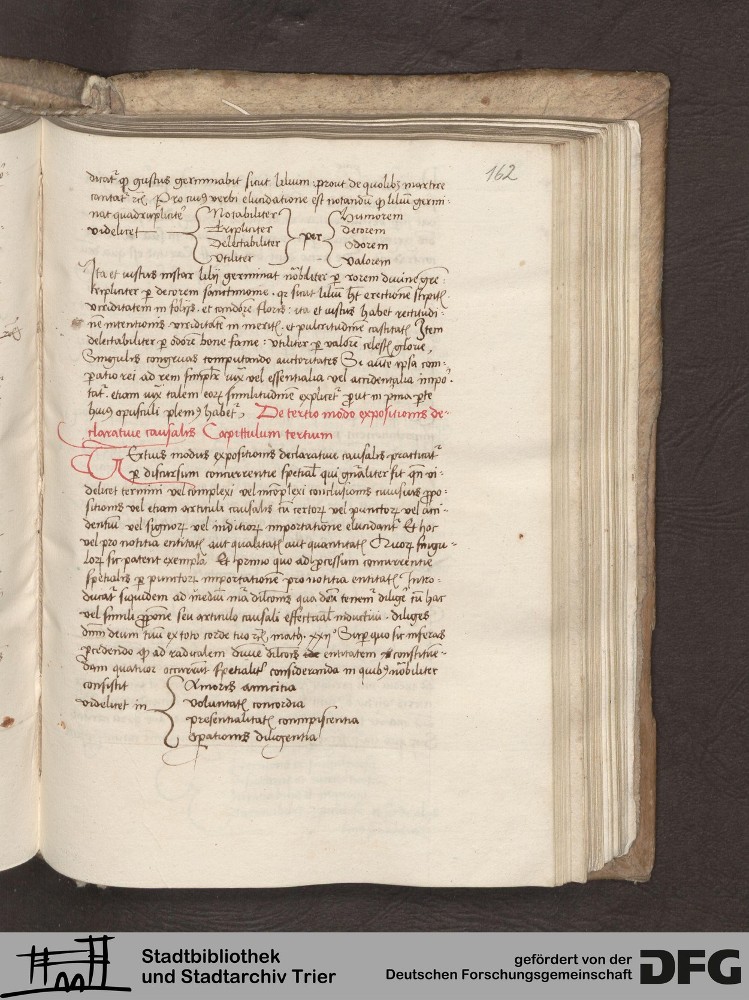 162
dicat' q gustus germinabit sicut lilium: prout de quolibz martire
cantat' etc. Pro cuius verbi elucidatione est notandum q lilium germi:
nat quadrupliciter
videlicet
Notabiliter
tripliciter
Delectabiliter
Utiliter
per
Humorem
decorem
Odorem
Valorem
Ita et iustus instar lilij germinat nobiliter p rorem divine gre:
tripliciter p decorem sanctimonie. qz sicut lilium ht erectione stipitis
viriditatem in folijs. et candore floris: ita et iustus habet rectitudi:
ne intentionis viriditate in meritis. et pulcritudine castitatis Item
delectabiliter p odore bone fame: utiliter p valore celestis glorie,
Singulis congruas computando auctoritates Si autem ipsa com:
patio rei ad rem simplr iuxta vel essentialia vel accidentalia impo:
tat'. etiam iuxta talem eorum similitudine explicet' prout in prima pte
huius opusculi plenius habet'. De tertio modo expositionis de:
clarative causalis Capittulum tertium
Tertius modus expositionis declarative causalis practicat'
p discursum concurrentie spetialis qui gnaliter fit qn vi:
delicet termini vel complexi vel incomplexi conclusionis cuiusvis ppo:
sitionis vel etiam articuli causalis cum certorum vel punctorum vel acci:
dentium vel signorum vel indiciorum importatione elucidant' Et hoc
vel pro notitia entitatis aut qualitatis aut quantitatis Quorum singu:
lorum sic patent exempla Et primo quo ad pcessum concurrentie
spetialis p punctorum importationem pro notitia entitatis. Intro:
ducat' siquidem ad medium
vel simili ppone seu articulo causali
dnm deum tuum ex toto corde tuo etc. math. xxij Super quo sic inferas
pcedendo q ad radicalem divine dilectionis entitatem constitue:
dam quatuor occurrunt spetialiter consideranda in quibus nobiliter
consistit
videlicet in
Amoris amicitia
voluntatis concordia
presentialitatis concupiscentia
Opationis diligentia
Stadtbibliothek
und Stadtarchiv Trier
gefördert von der
Deutschen Forschungsgemeinschaft
DFG